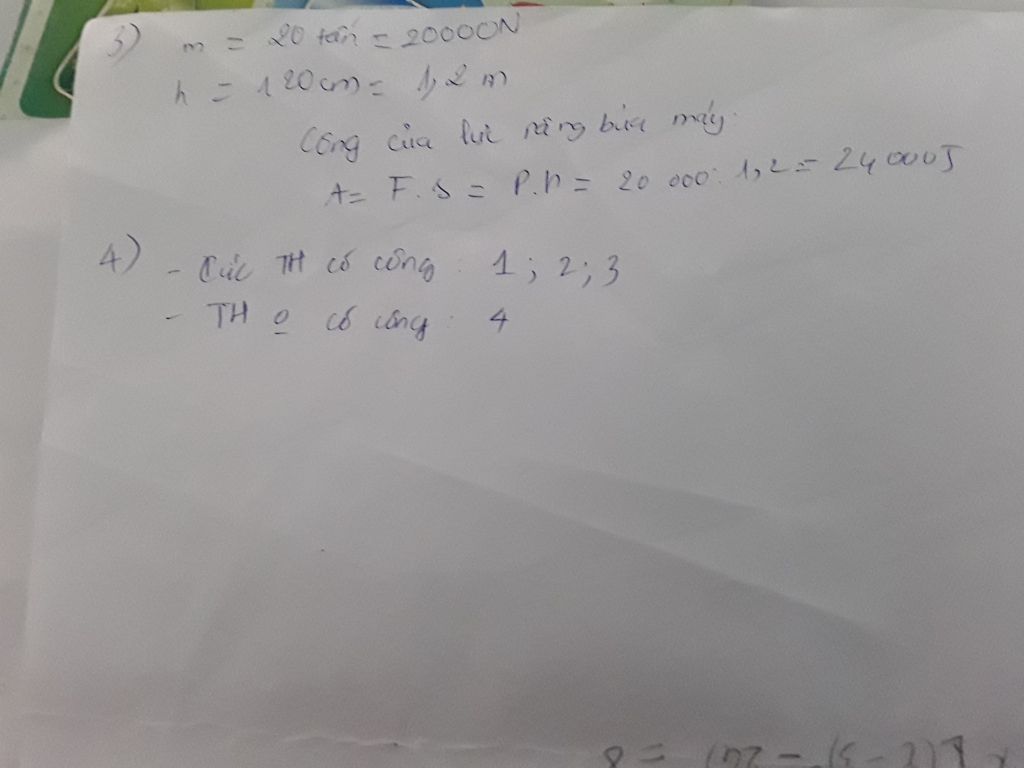 3) m = 20 tấn = 20000N
h = 120cm = 1,2 m
Công của lực nâng búa máy:
A = F.s = P.h = 20 000. 1,2 = 24 000J
4) - Các TH có công : 1 ; 2 ; 3
- TH o có công : 4